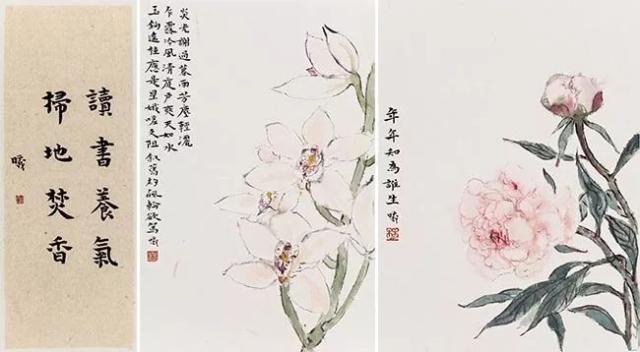 讀書養氣
掃地焚香
曦
炎光謝過暮雨芳塵輕灑
乍露冷風清庭戶爽天如水
玉鉤遙挂應是星娥嗟久阻敘舊約飈輪欲駕
年年知為誰生